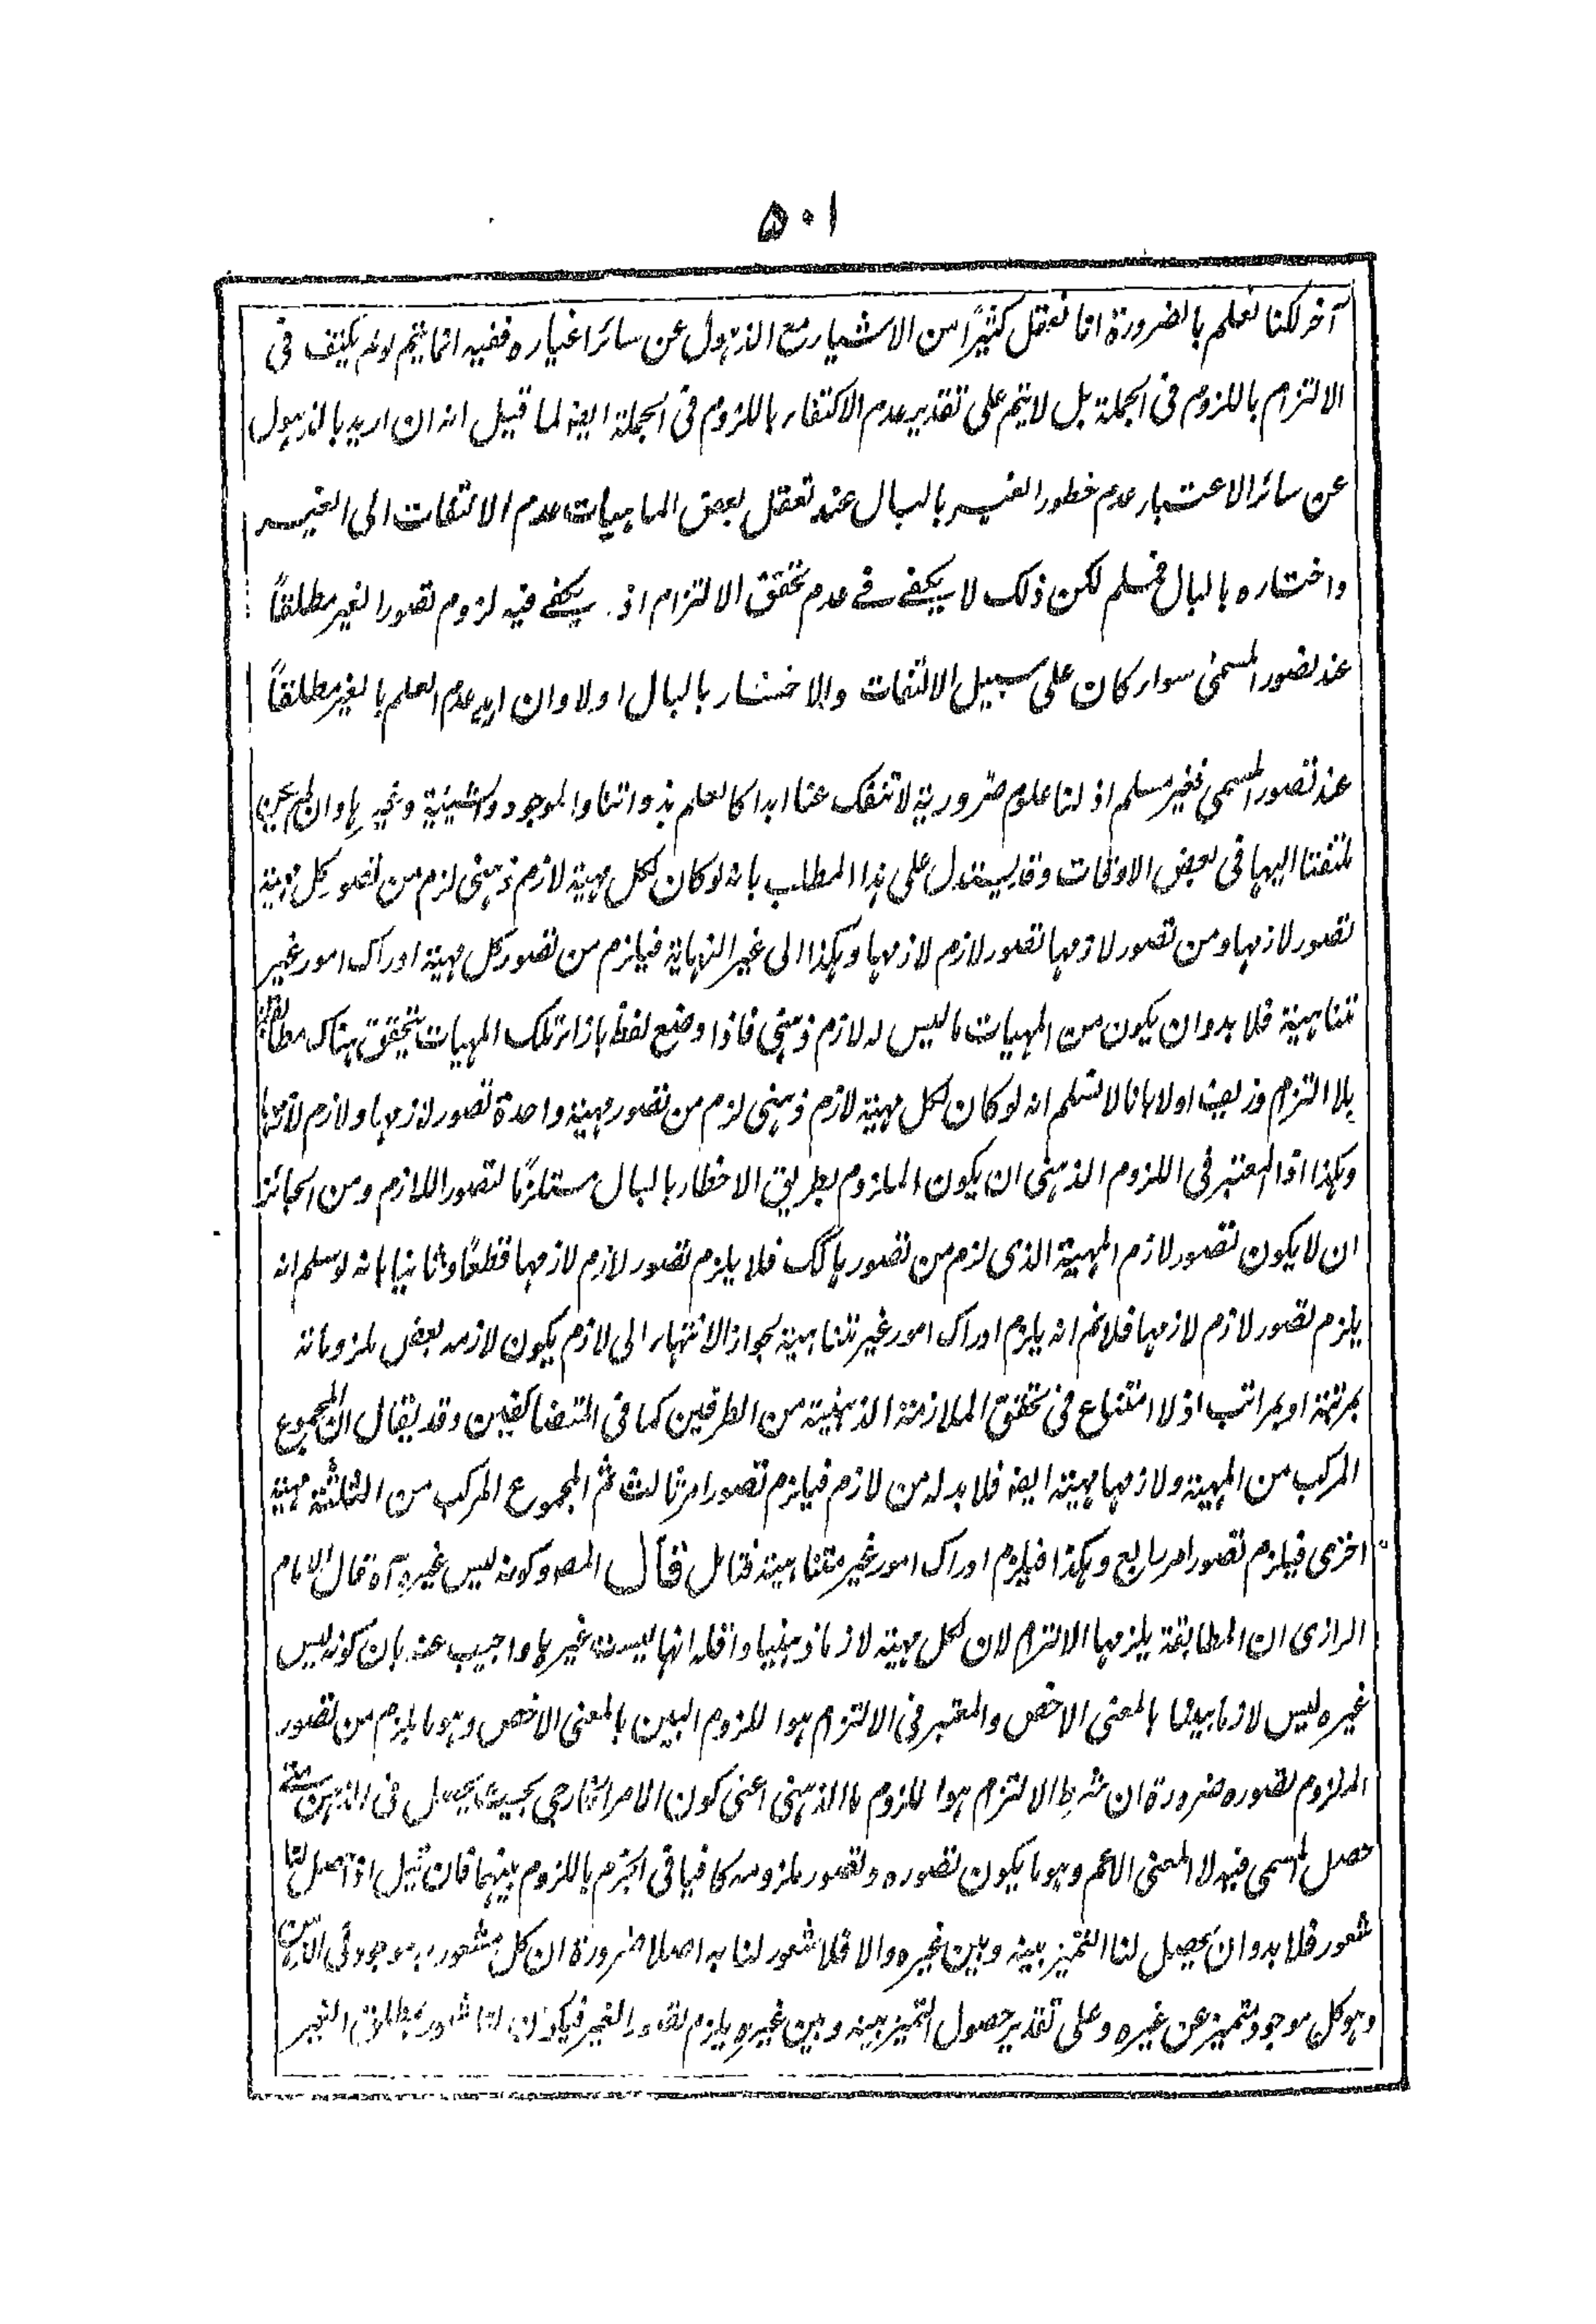 ۵۰۱
آخر لكنا نعلم بالضرورة انا نعقل كثيرًا من الاشياء مع الذهول عن سائر اغياره ففيه انما يتم لو لم يكتف فى
الالتزام باللزوم فى الجملة بل لا يتم على تقدير عدم الاكتفاء باللزوم فى الجملة ايضا لما قيل انه ان اريد بالذهول
عن سائر الاعتبار عدم خطور الغير بالبال عند تعقل بعض الماهيات عدم الالتفات الى الغير
واختاره بالبال فمسلم لكن ذلك لا يكفے فے عدم تحقق الالتزام اذ يكفے فيه لزوم تصور الغير مطلقاً
عند تصور المسمى سواء كان على سبيل الالتفات والاخطار بالبال اولا وان اريد عدم العلم بالغير مطلقاً
عند تصور المسمى فغير مسلم اذ لنا علوم ضرورية لا تنفك عنا ابدا كالعلم بذواتنا والموجود والشيئية وغيرها وان لم نكن
ملتفتا اليها فى بعض الاوقات وقد يستدل على هذا المطلب بانه لو كان لكل مهية لازم ذهنى لزم من تصور كل مهية
تصور لازمها ومن تصور لازمها تصور لازم لازمها وهكذا الى غير النهاية فيلزم من تصور كل مهية ادراك امور غير
متناهية فلا بد وان يكون من المهيات ما ليس له لازم ذهنى فاذا وضع لفظ بازاء تلك المهيات يتحقق هناك مطابقة
بلا التزام وزيف اولا بانا لا نسلم انه لو كان لكل مهية لازم ذهنى لزم من تصور مهية واحدة تصور لازمها ولازم لازمها
وهكذا اذ المعتبر فى اللزوم الذهنى ان يكون الملزوم بطريق الاخطار بالبال مستلزمًا لتصور اللازم ومن الجائز
ان لا يكون تصور لازم المهية الذى لزم من تصورها كك فلا يلزم تصور لازم لازمها قطعًا وثانيا بانه لو سلم انه
يلزم تصور لازم لازمها فلا نم انه يلزم ادراك امور غير متناهية بجواز الانتهاء الى لازم يكون لازمه بعض ملزوماته
بمرتبة او بمراتب اذ لا امتناع فى تحقق الملازمة الذهنية من الطرفين كما فى المتضائفين وقد يقال ان المجموع
المركب من المهية ولازمها مهية ايضا فلا بد له من لازم فيلزم تصور امر ثالث ثم المجموع المركب من الثلثة مهية
اخرى فيلزم تصور امر رابع وهكذا فيلزم ادراك امور غير متناهية فتامل قال المصر وكونه ليس غيره آه قال الامام
الرازى ان المطابقة يلزمها الالتزام لان لكل مهية لازما ذهنيا واقله انها ليست غيرها واجيب عنه بان كونه ليس
غيره ليس لازما بينا بالمعنى الاخص والمعتبر فى الالتزام هو اللزوم البين بالمعنى الاخص وهو ما يلزم من تصور
الملزوم تصوره ضرورة ان شرط الالتزام هو اللزوم الذهنى اعنى كون الامر الخارجى بحيث يحصل فى الذهن متے
حصل المسمى فيه لا المعنى الاعم وهو ما يكون تصوره وتصور ملزومه كافيا فى الجزم باللزوم بينهما فان قيل اذا حصل لنا
شعور فلا بد وان يحصل لنا التميز بينه وبين غيره والا فلا شعور لنا به اصلا ضرورة ان كل مشعور به موجود فى الذهن
وهو كل موجود متميز عن غيره وعلى تقدير حصول التميز بينه وبين غيره يلزم تصور الغير فيكون لنا شعور بمطلق الغير